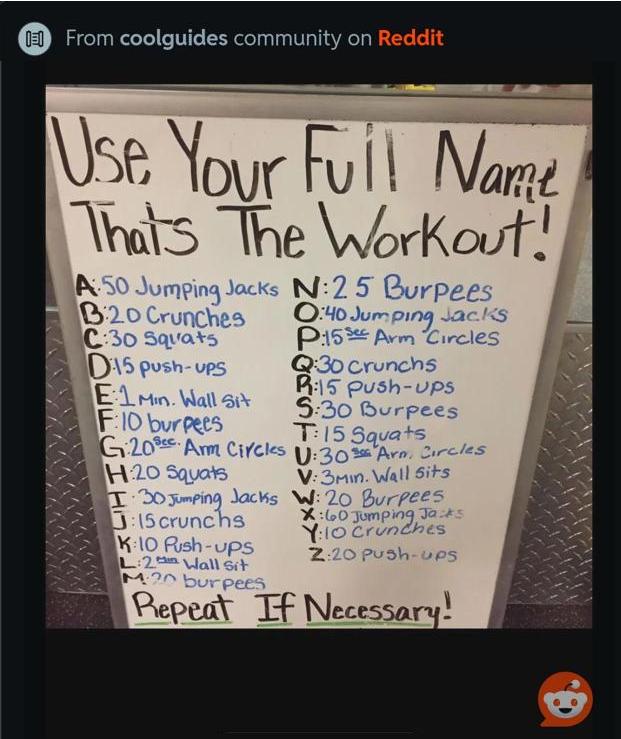 From coolguides community on Reddit
Use Your Full Name
Thats The Workout!
A:50 Jumping Jacks
B:20 Crunches
C:30 Squats
D:15 push-ups
E:1 Min. Wall Sit
F:10 burpees
G:20 Sec. Arm Circles
H:20 Squats
I:30 Jumping Jacks
J:15 crunchs
K:10 Push-ups
L:2 Min Wall Sit
M:20 burpees
N:25 Burpees
O:40 Jumping Jacks
P:15 Sec Arm Circles
Q:30 crunchs
R:15 push-ups
S:30 Burpees
T:15 Squats
U:30 Sec Arm. Circles
V:3 Min. Wall Sits
W:20 Burpees
X:60 Jumping Jacks
Y:10 Crunches
Z:20 push-ups
Repeat If Necessary!